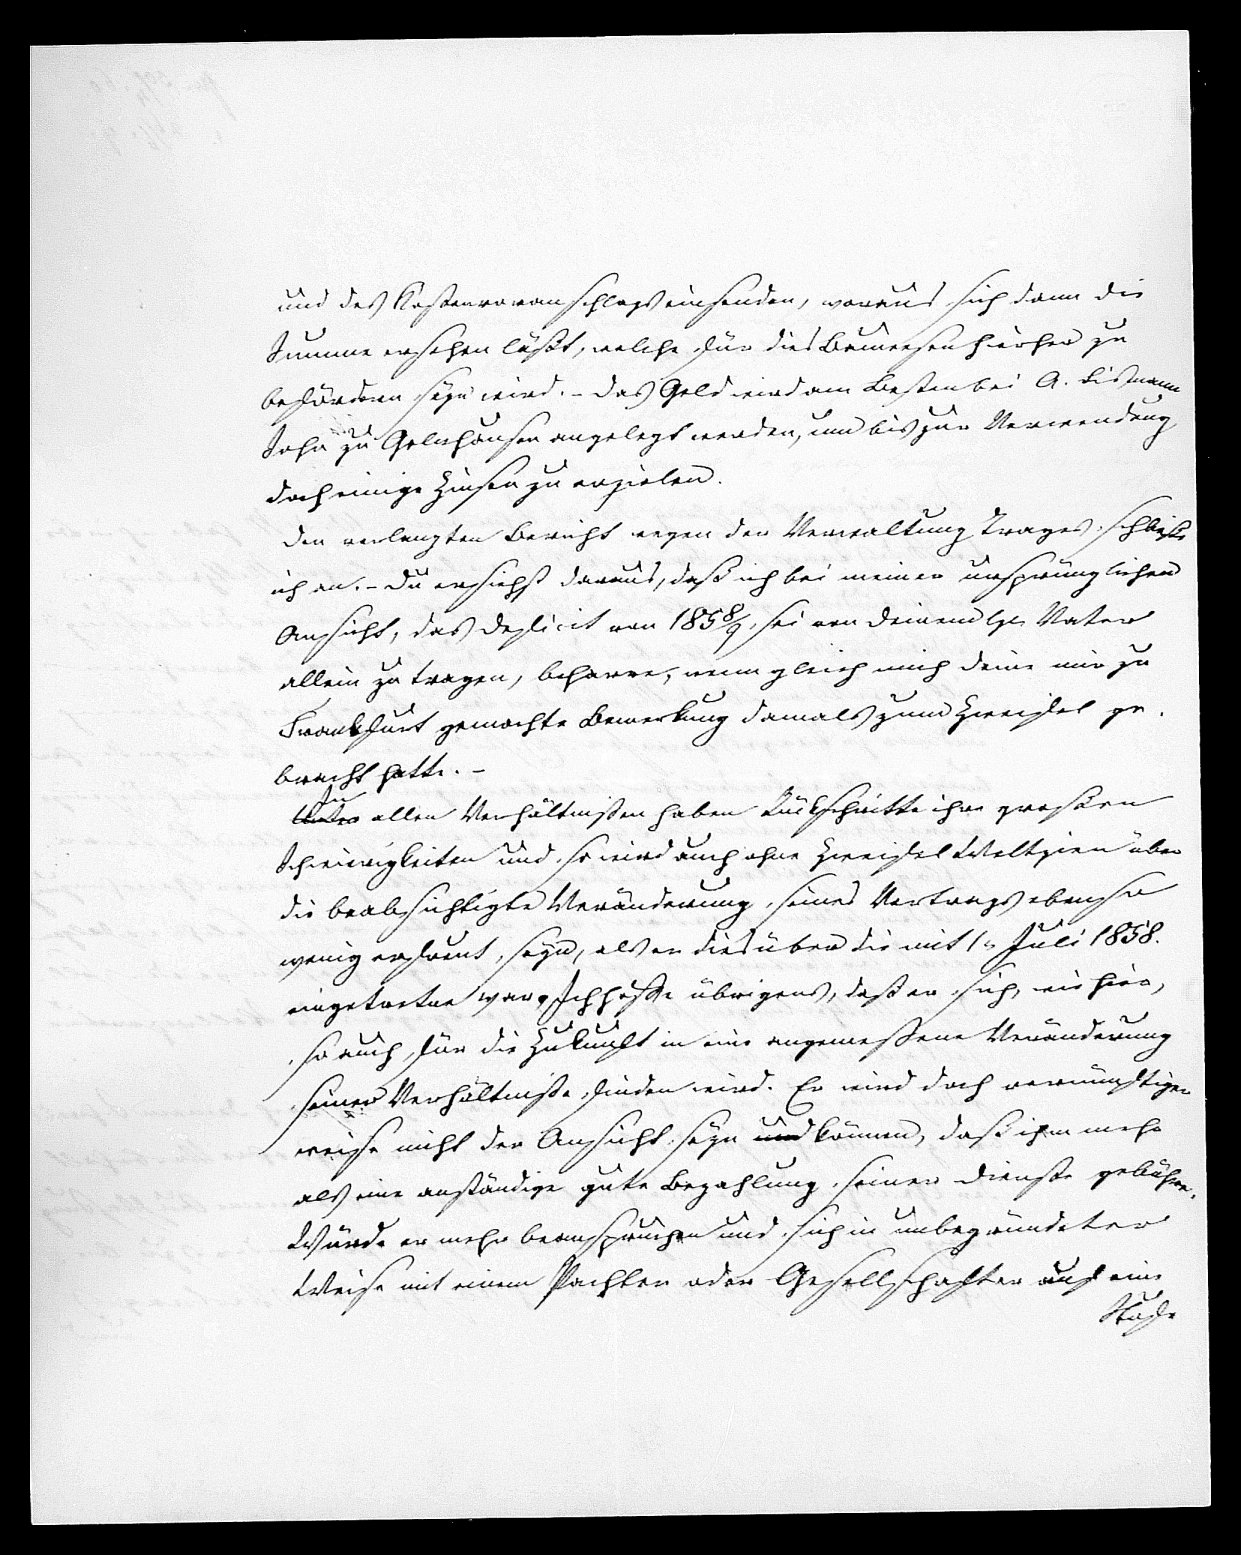 und des Kostenvoranschlags einsenden, woraus sich dann die
Summe ersehen läßt, welche für dies Bauwesen hierher zu
befördern seyn wird. - Das Geld wird am Besten bei A.
Sohn zu Gelnhausen angelegt werden, um bis zur Verwendung
doch einige Zinsen zu erzielen.
Den verlangten Bericht wegen der Verwaltung Trages schließe
ich an. - Du ersiehst daraus, daß ich bei meiner ursprünglichen
Ansicht, das Deficit von 1858/9 sei von Deinem Vater
allein zu tragen, beharre, wenn gleich mich Deine mir zu
Frankfurt gemachte Bemerkung damals zum Zweifel ge-
bracht hatte. -
In
Unter allen Verhältnißen haben Rückschritte ihre großen
Schwierigkeiten und so wird auch ohne Zweifel Weltzien über
die beabsichtigte Veränderung seines Vertrags ebenso
wenig erfreut seyn, als er dies über die mit 1n Juli 1858.
eingetretne war. Ich hoffe übrigens, daß er sich, wie hier,
so auch für die Zukunft in eine angemeßene Veränderung
seiner Verhältniße finden wird. Er wird doch vernünftiger
weise nicht der Ansicht seyn und können, daß ihm mehr
als eine anständige gute Bezahlung seiner Dienste gebühre.
Würde er mehr beanspruchen und sich in unbegründeter
Weise mit einem Pachter oder Gesellschafter auf eine
Stufe